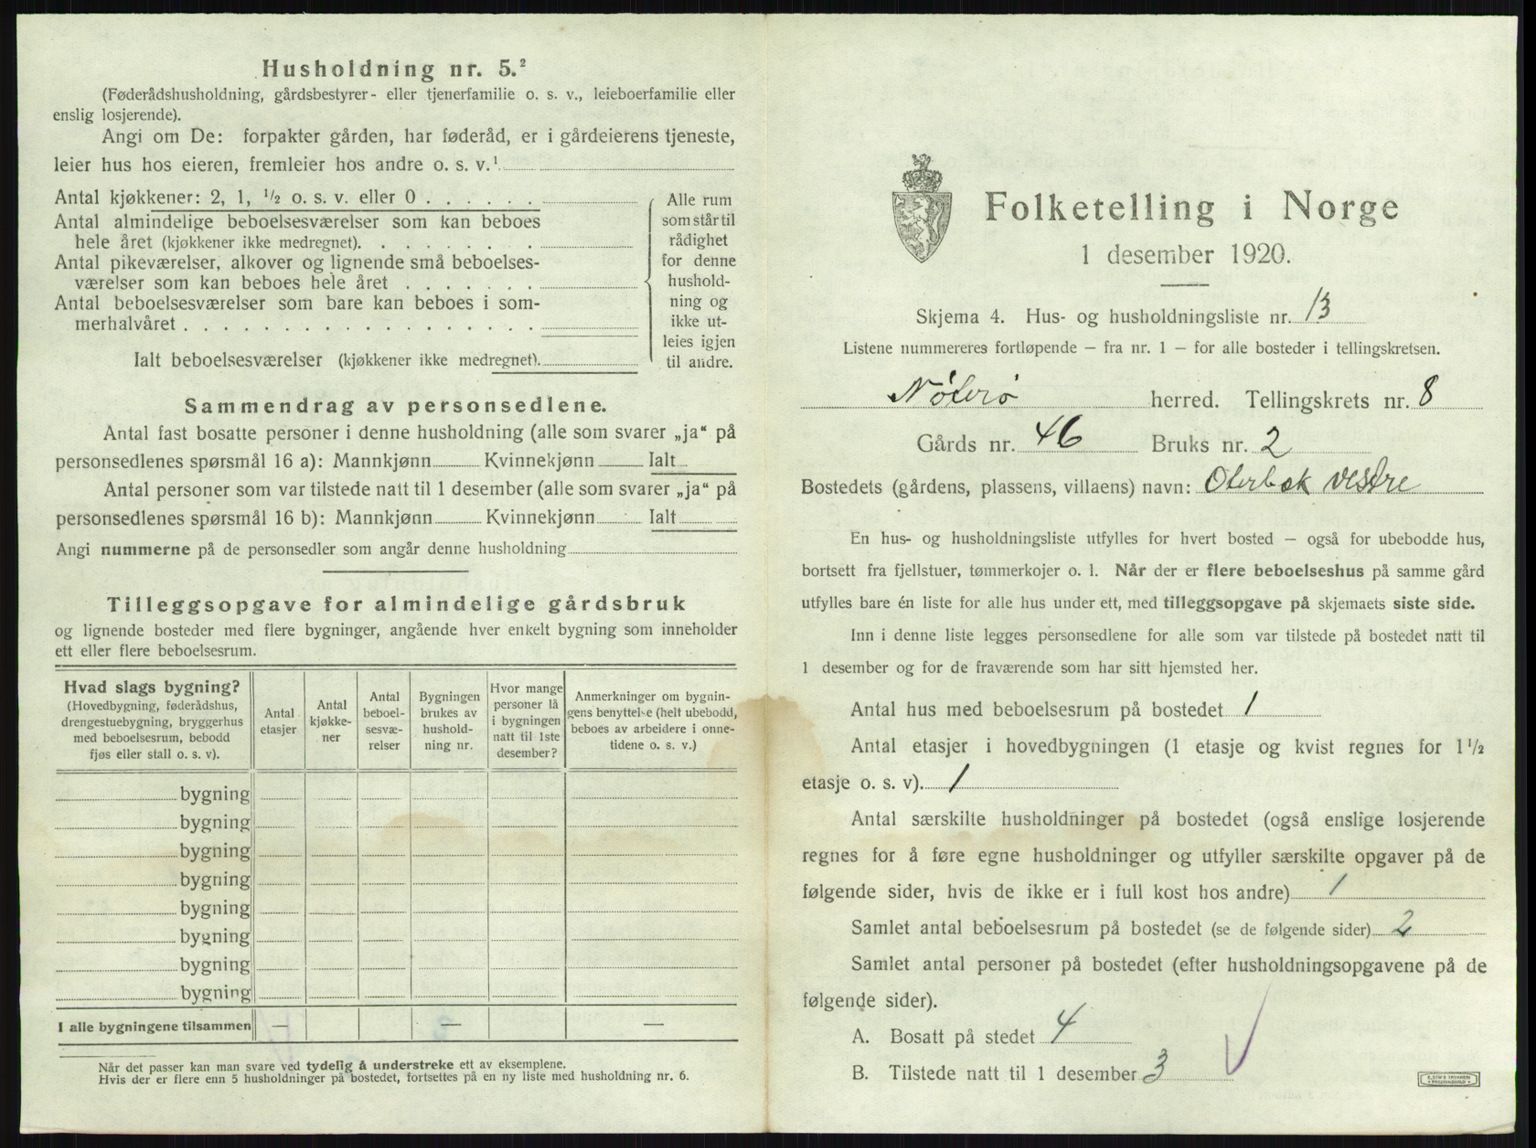 Husholdning nr. 5.²
(Føderådshusholdning, gårdsbestyrer- eller tjenerfamilie o. s. v., leieboerfamilie eller
enslig losjerende).
Angi om De: forpakter gården, har føderåd, er i gårdeierens tjeneste,
leier hus hos eieren, fremleier hos andre o. s. v.¹
Antal kjøkkener: 2, 1, ½ o. s. v. eller 0 . . . . . .
Antal almindelige beboelsesværelser som kan beboes
hele året (kjøkkener ikke medregnet). . . . . . . .
Antal pikeværelser, alkover og lignende små beboelses-
værelser som kan beboes hele året . . . . . . .
Antal beboelsesværelser som bare kan beboes i som-
merhalvåret . . . . . . . . . . . . . . . . . .
Ialt beboelsesværelser (kjøkkener ikke medregnet).
Alle rum
som står til
rådighet
for denne
hushold-
ning og
ikke ut-
leies igjen
til andre.
Sammendrag av personsedlene.
Antal fast bosatte personer i denne husholdning (alle som svarer „ja“ på
personsedlenes spørsmål 16 a): Mannkjønn Kvinnekjønn Ialt
Antal personer som var tilstede natt til 1 desember (alle som svarer „ja“ på
personsedlenes spørsmål 16 b): Mannkjønn Kvinnekjønn Ialt
Angi nummerne på de personsedler som angår denne husholdning
Tilleggsopgave for almindelige gårdsbruk
og lignende bosteder med flere bygninger, angående hver enkelt bygning som inneholder
ett eller flere beboelsesrum.
Hvad slags bygning?
(Hovedbygning, føderådshus,
drengestuebygning, bryggerhus
med beboelsesrum, bebodd
fjøs eller stall o. s. v).
Antal
etasjer
Antal
kjøkke-
ner
Antal
beboel-
sesvæ-
relser
Bygningen
brukes av
hushold-
ning nr.
Hvor mange
personer lå
i bygningen
natt til 1ste
desember?
Anmerkninger om bygnin-
gens benyttelse (helt ubebodd,
beboes av arbeidere i onne-
tidene o. s. v.)
bygning
bygning
bygning
bygning
bygning
bygning
bygning
bygning
I alle bygningene tilsammen — — —
Når det passer kan man svare ved tydelig å understreke ett av eksemplene.
Hvis der er flere enn 5 husholdninger på bostedet, fortsettes på en ny liste med husholdning nr. 6.
Folketelling i Norge
1 desember 1920.
Skjema 4. Hus- og husholdningsliste nr. 13
Listene nummereres fortløpende – fra nr. 1 – for alle bosteder i tellingskretsen.
Nøterø herred. Tellingskrets nr. 8
Gårds nr. 46 Bruks nr. 2
Bostedets (gårdens, plassens, villaens) navn: Oterbek vestre
En hus- og husholdningsliste utfylles for hvert bosted – også for ubebodde hus,
bortsett fra fjellstuer, tømmerkojer o. l. Når der er flere beboelseshus på samme gård
utfylles bare én liste for alle hus under ett, med tilleggsopgave på skjemaets siste side.
Inn i denne liste legges personsedlene for alle som var tilstede på bostedet natt til
1 desember og for de fraværende som har sitt hjemsted her.
Antal hus med beboelsesrum på bostedet 1
Antal etasjer i hovedbygningen (1 etasje og kvist regnes for 1½
etasje o. s. v). 1
Antal særskilte husholdninger på bostedet (også enslige losjerende
regnes for å føre egne husholdninger og utfyller særskilte opgaver på de
følgende sider, hvis de ikke er i full kost hos andre) 1
Samlet antal beboelsesrum på bostedet (se de følgende sider) 2
Samlet antal personer på bostedet (efter husholdningsopgavene på de
følgende sider).
A. Bosatt på stedet 4
B. Tilstede natt til 1 desember 3